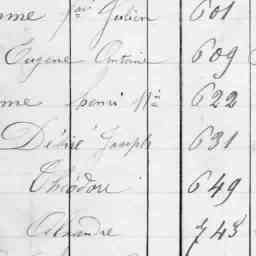 Julien 601
Eugene Antoine 609
henri 622
Désiré Joseph 631
Théodore 649
Alexandre 743